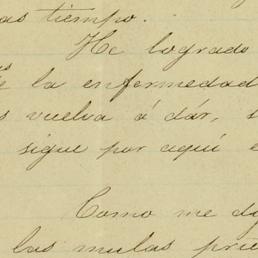 as tiempo.
He logrado
la enfermedad
s vuelva á dár, s
sigue por aquí e
Como me di
las mulas prie